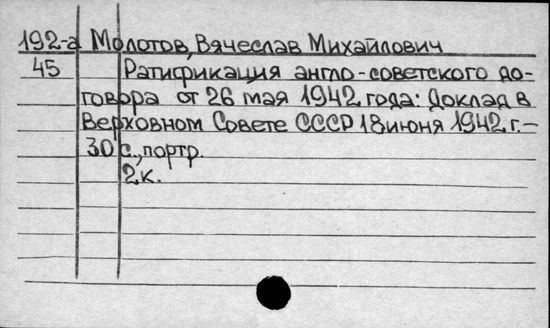 192-а Молотов, Вячеслав Михайлович
45 Ратификация англо-советского до-
говора от 26 мая 1942 года: Доклад в
Верховном Совете СССР 18 июня 1942 г.-
30 с., портр.
2 к.